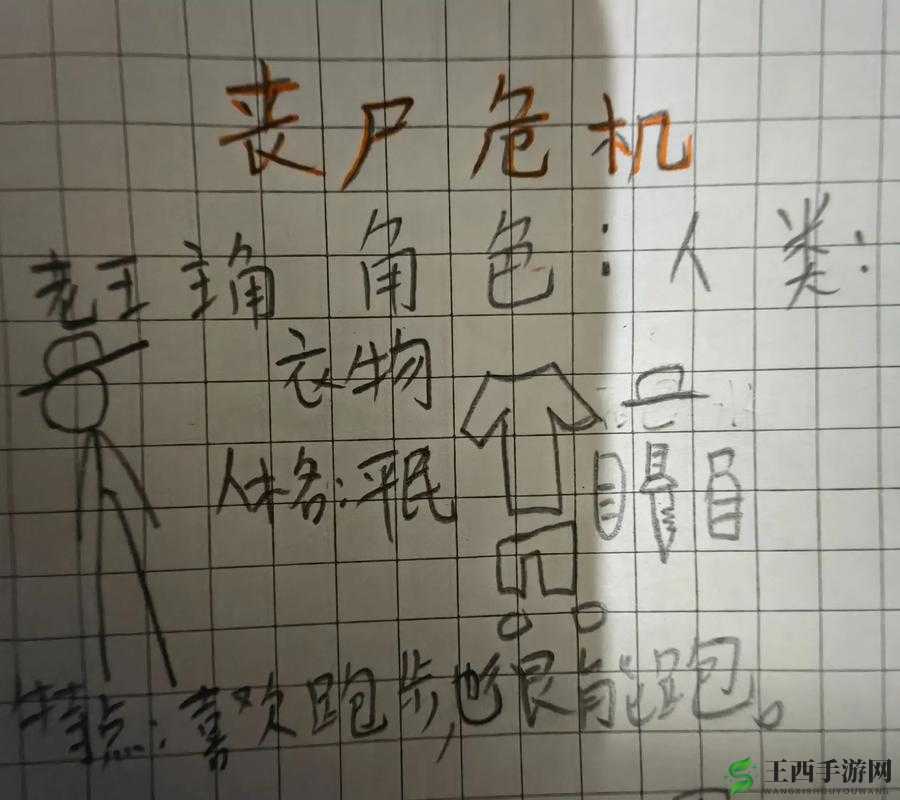 丧尸危机
老王 主角 角色:人类:
衣物
人格:平民
特点:喜欢跑步,也很能跑。
王西手游网
WANGXISHOUYOUWANG